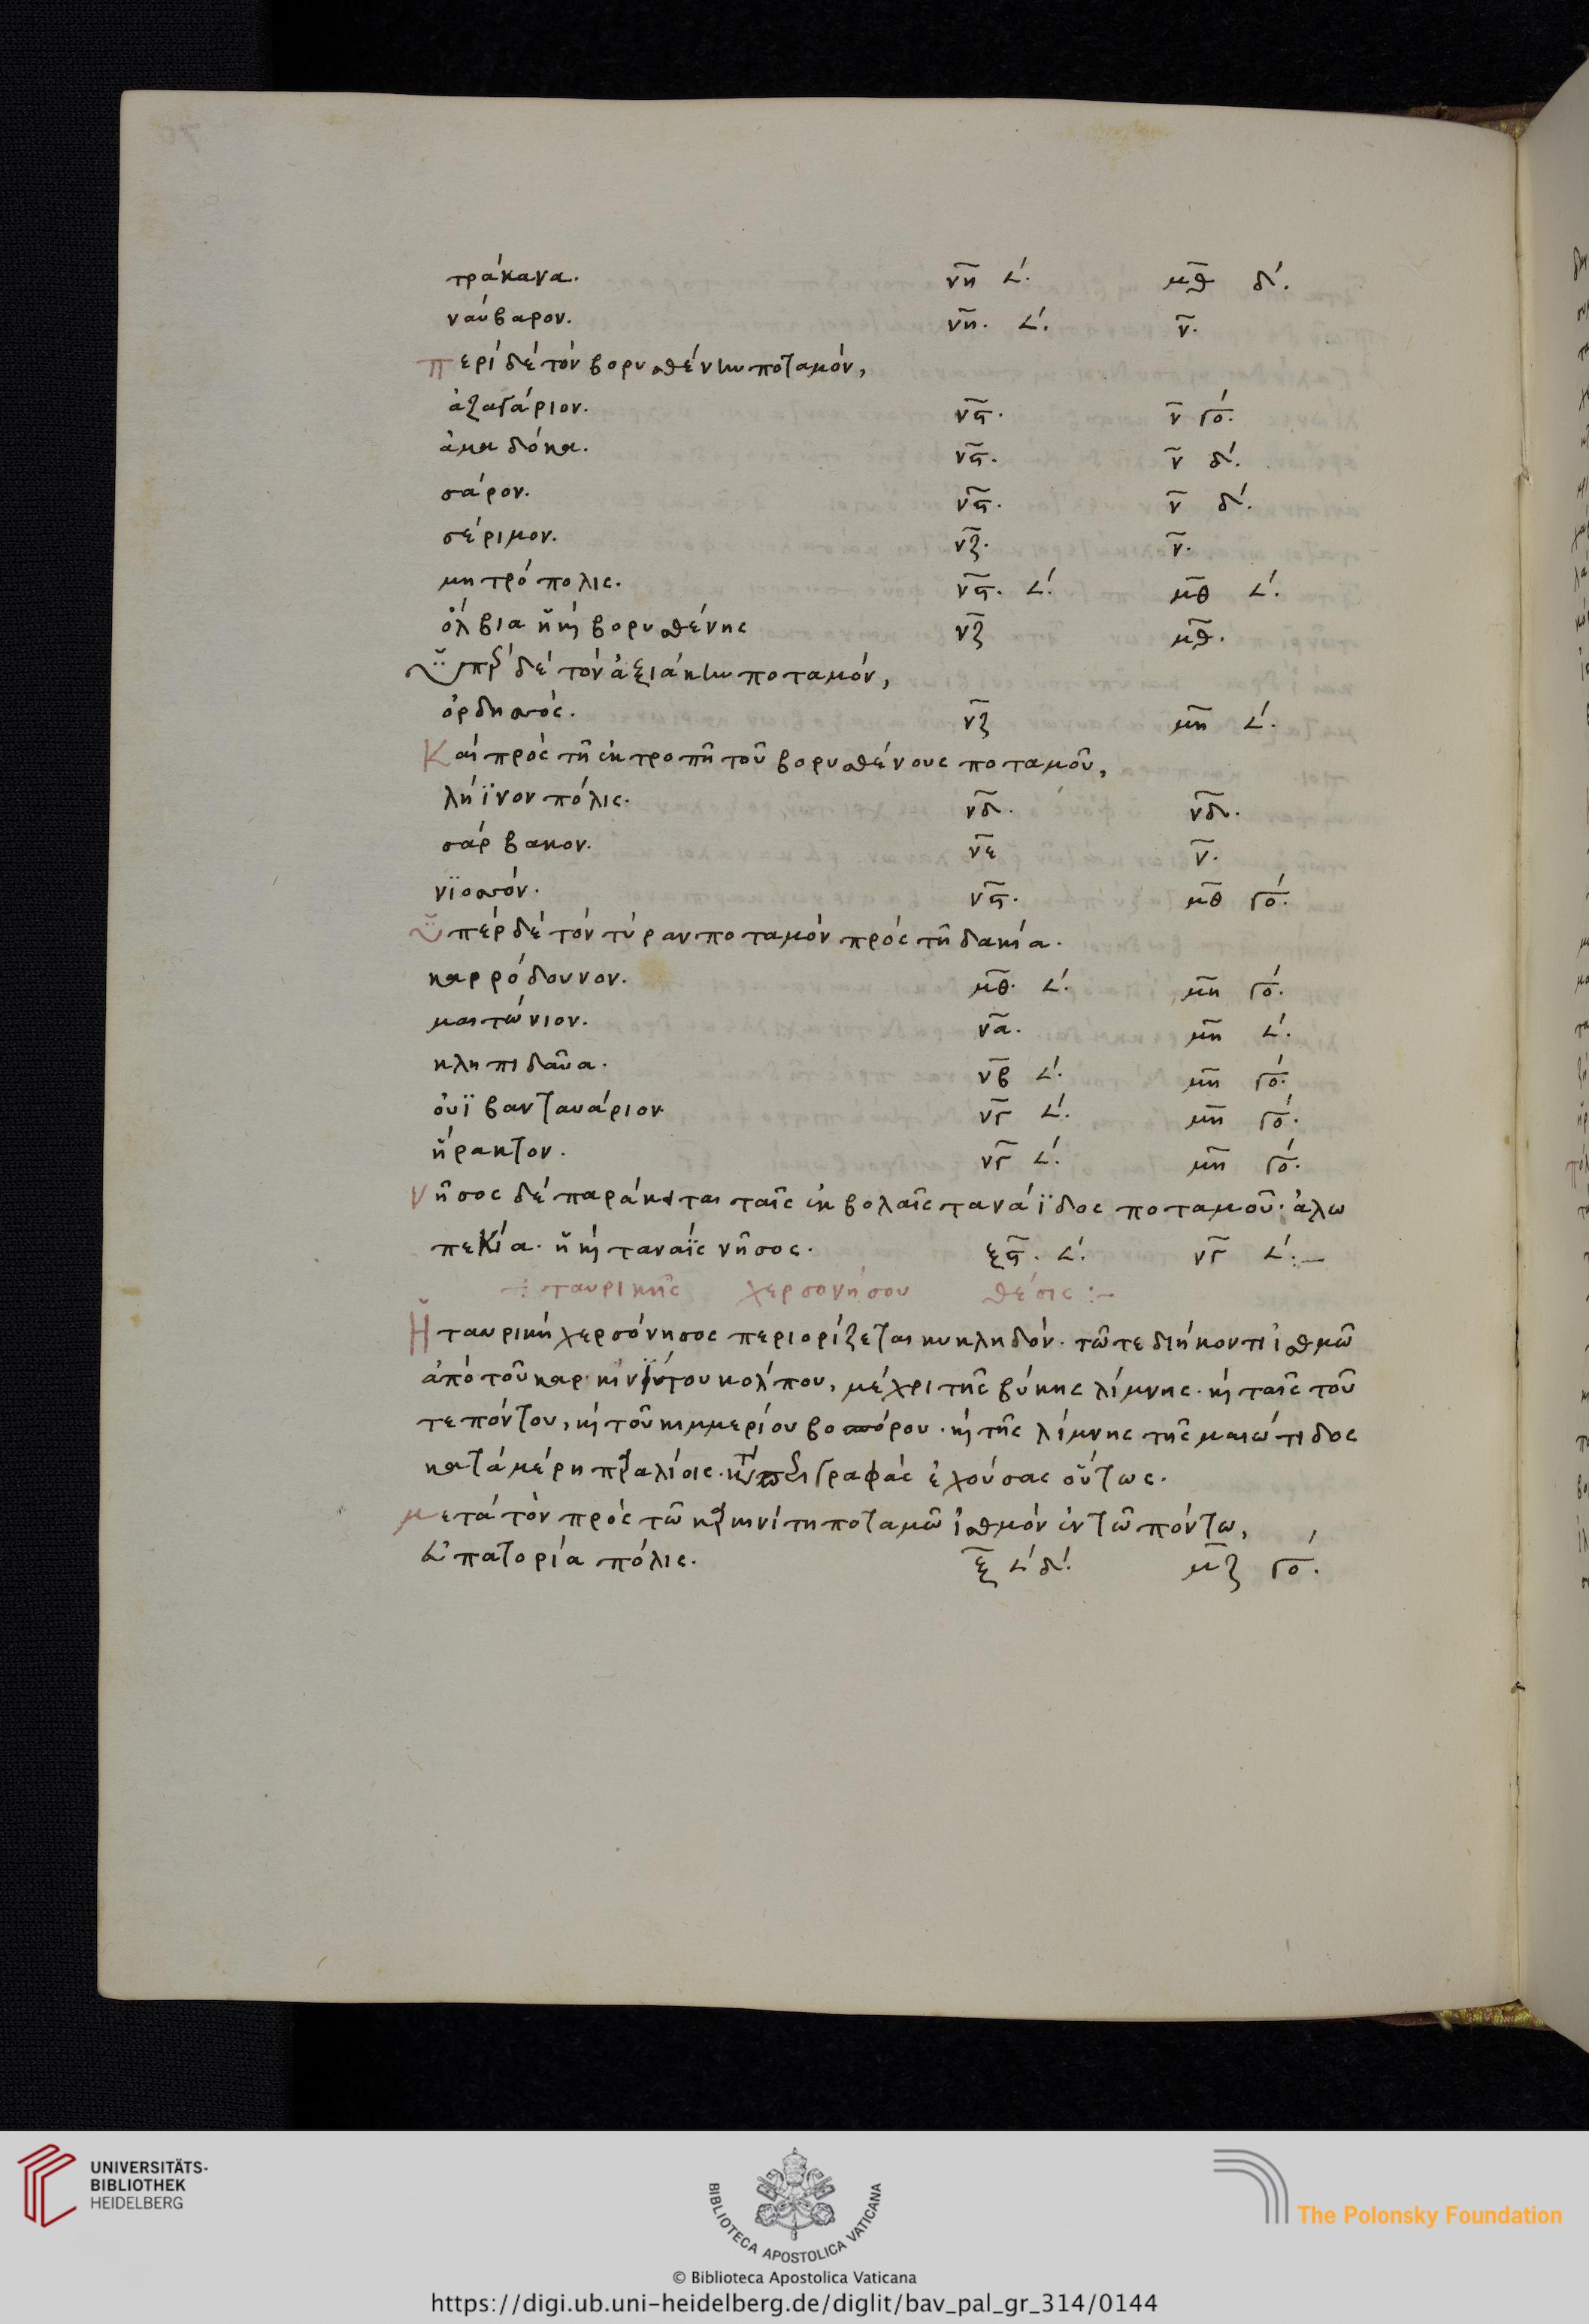 τράκανα. νη 𐅵. μθ δ΄.
ναύβαρον. νη. 𐅵. ν.
περὶ δὲ τὸν βορυσθένην ποταμὸν,
ἀζαγάριον. νϛ. ν γο.
ἀμαδόκα. νϛ. ν δ΄.
σάρον. νϛ. ν δ΄.
σέριμον. νζ. ν.
μητρόπολις. νϛ. 𐅵. μθ 𐅵.
ὀλβία ἢ καὶ βορυσθένης νζ μθ.
ὑπὲρ δὲ τὸν ἀξιάκην ποταμὸν,
ὀρδησσός. νζ μη 𐅵.
Καὶ πρὸς τῇ ἐκτροπῇ τοῦ βορυσθένους ποταμοῦ,
λήϊνον πόλις. νδ. νδ.
σάρβακον. νε ν.
νϊοσσόν. νϛ. μθ γο.
ὑπὲρ δὲ τὸν τύραν ποταμὸν πρὸς τῇ δακία.
καρρόδουνον. μθ. 𐅵. μη γο.
μαιτώνιον. να. μη 𐅵.
κληπιδαῦα. νβ 𐅵. μη γο.
οὐϊβανταυάριον νγ 𐅵. μη γο.
ἤρακτον. νγ 𐅵. μη γο.
νῆσος δὲ παράκειται ταῖς ἐκβολαῖς τανάϊδος ποταμοῦ. ἀλω
πεκία. ἢ καὶ ταναῒς νῆσος. ξϛ. 𐅵. νγ 𐅵:–
ταυρικῆς χερσονήσου θέσις:–
Ἡ ταυρικὴ χερσόνησος περιορίζεται κυκληδόν. τῶ τε διήκοντι ἰσθμῶ
ἀπὸ τοῦ καρκινίτου κόλπου, μέχρι τῆς βύκης λίμνης. καὶ ταῖς τοῦ
τε πόντου, καὶ τοῦ κιμμερίου βοσπόρου. καὶ τῆς λίμνης τῆς μαιώτιδος
κατὰ μέρη παραλίοις. γραφὰς ἐχούσας οὕτως.
μετὰ τὸν πρὸς τῶ καρκινίτη ποταμῶ ἰσθμὸν ἐν τῶ πόντω,
εὐπατορία πόλις. ξ 𐅵 δ΄. μζ γο.
UNIVERSITÄTS-
BIBLIOTHEK
HEIDELBERG
BIBLIOTECA APOSTOLICA VATICANA
The Polonsky Foundation
© Biblioteca Apostolica Vaticana
https://digi.ub.uni-heidelberg.de/diglit/bav_pal_gr_314/0144